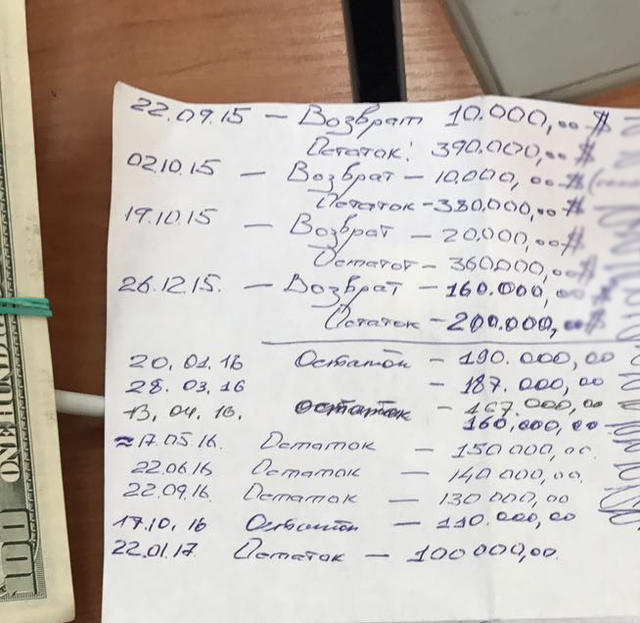 22.09.15 – Возврат 10.000,00 $
Остаток: 390.000,00 $
02.10.15 – Возврат – 10.000,00 $
Остаток – 380.000,00 $
19.10.15 – Возврат – 20.000,00 $
Остаток – 360.000,00 $
26.12.15. – Возврат – 160.000,00
Остаток – 200.000,00 $
20.01.16 Остаток – 190.000,00
28.03.16 – 187.000,00
13.04.16. остаток – 167.000,00
160,000,00
≈17.05.16. Остаток – 150 000,00.
22.06.16 Остаток – 140 000,00.
22.09.16. Остаток – 130 000,00
17.10.16 Остаток – 110.000,00
22.01.17 Остаток – 100 000,00.
ONE HUNDRED
100